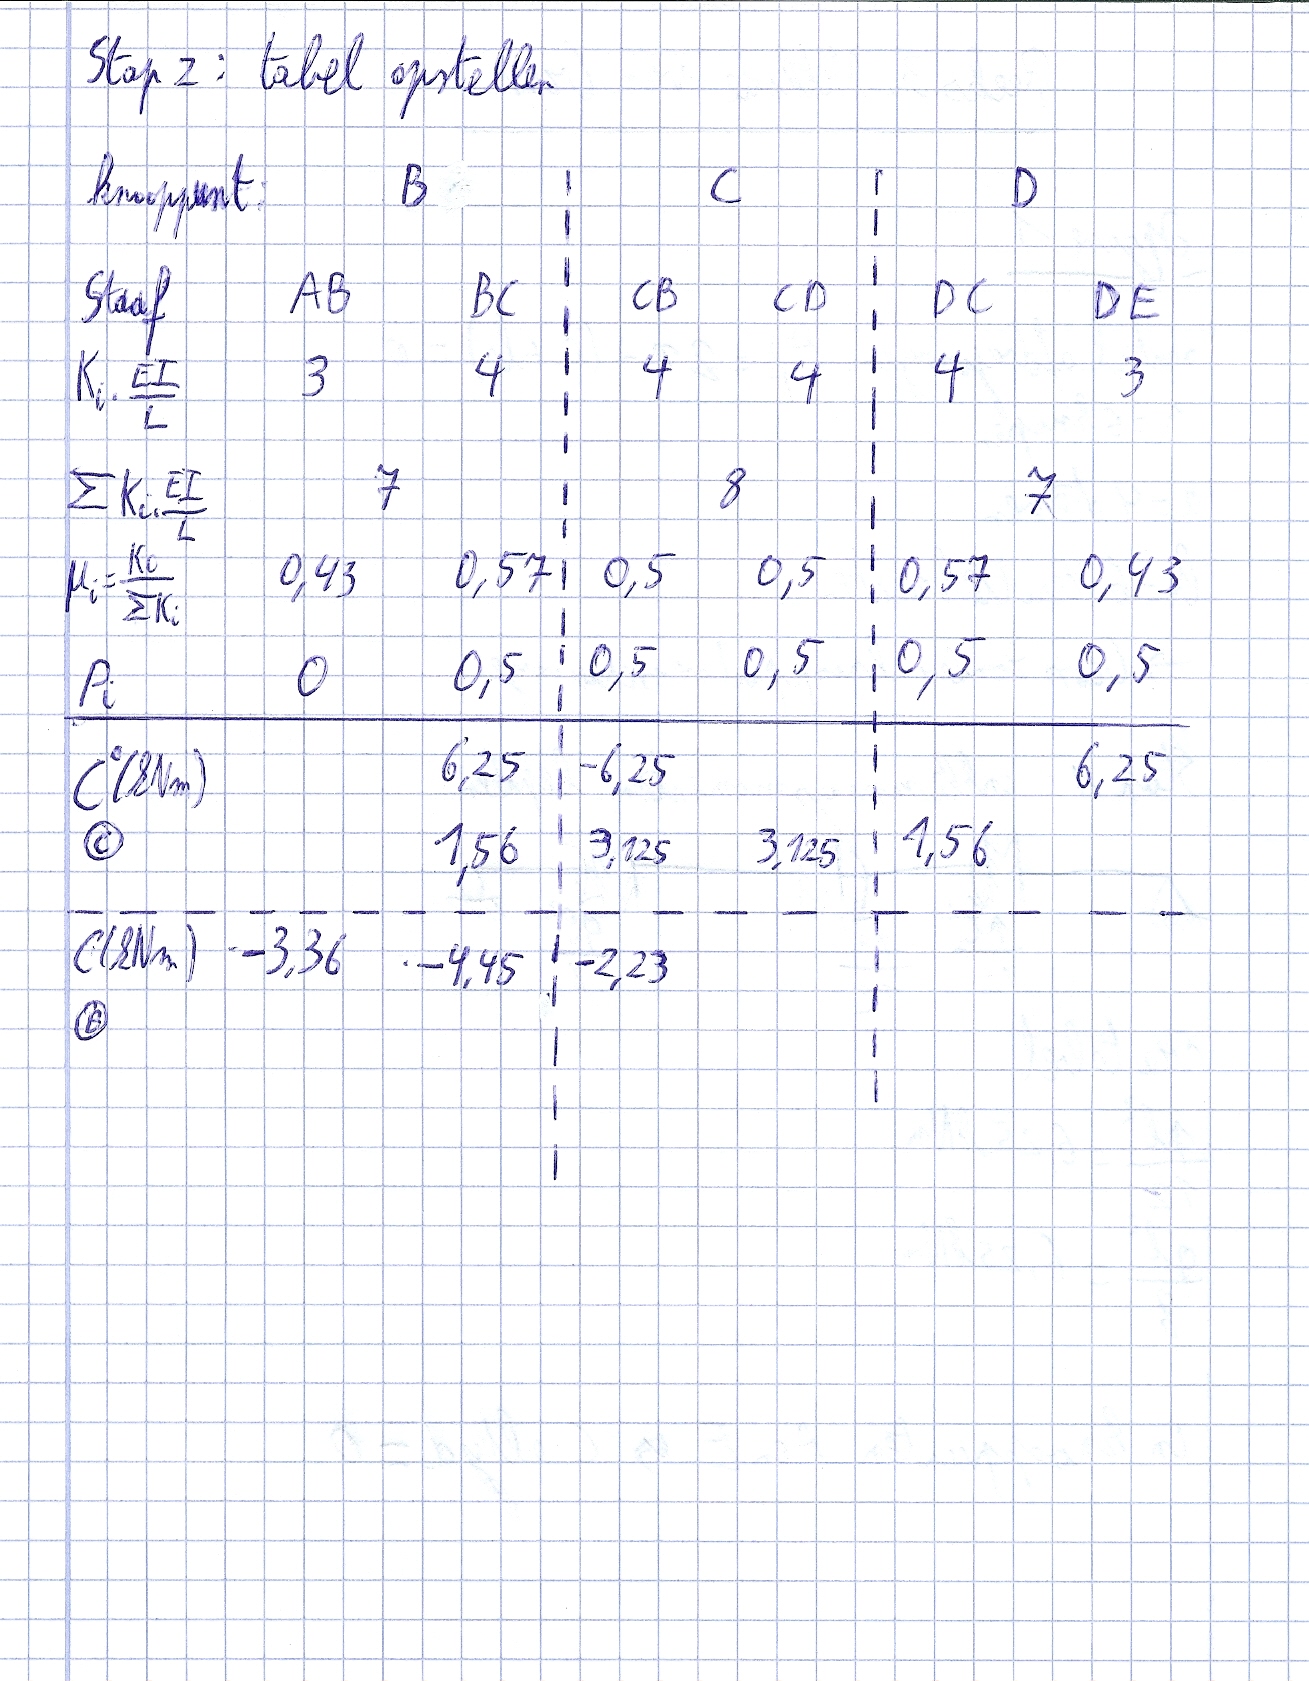 Stap 2: tabel opstellen
knooppunt: B C D
Staaf AB BC CB CD DC DE
Ki. EI/L 3 4 4 4 4 3
ΣKi. EI/L 7 8 7
μi = Ki/ΣKi 0,43 0,57 0,5 0,5 0,57 0,43
ρi 0 0,5 0,5 0,5 0,5 0,5
C°(kNm) 6,25 -6,25 6,25
Ⓒ 1,56 3,125 3,125 1,56
C(kNm) -3,36 -4,45 -2,23
Ⓑ